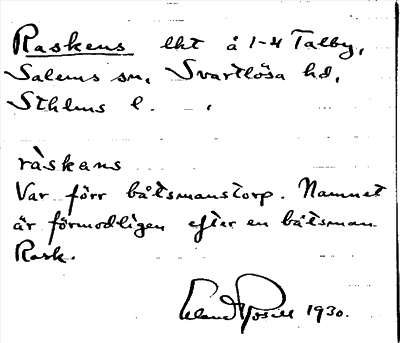 Raskens lht å 1-4 Talby,
Salems sn, Svartlösa hd,
Sthlms l.
ràskans
Var förr båtsmanstorp. Namnet
är förmodligen efter en båtsman
Rask.
Erland Rosell 1930.